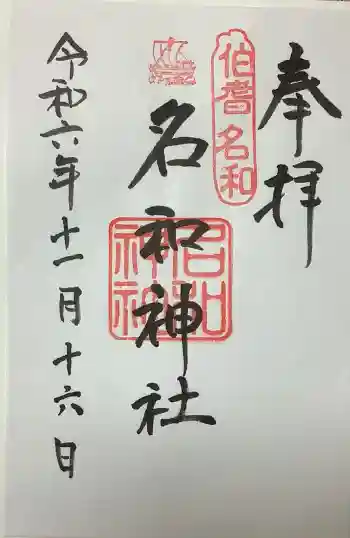 奉拝
伯耆名和
名和神社
名和神社
令和六年十一月十六日